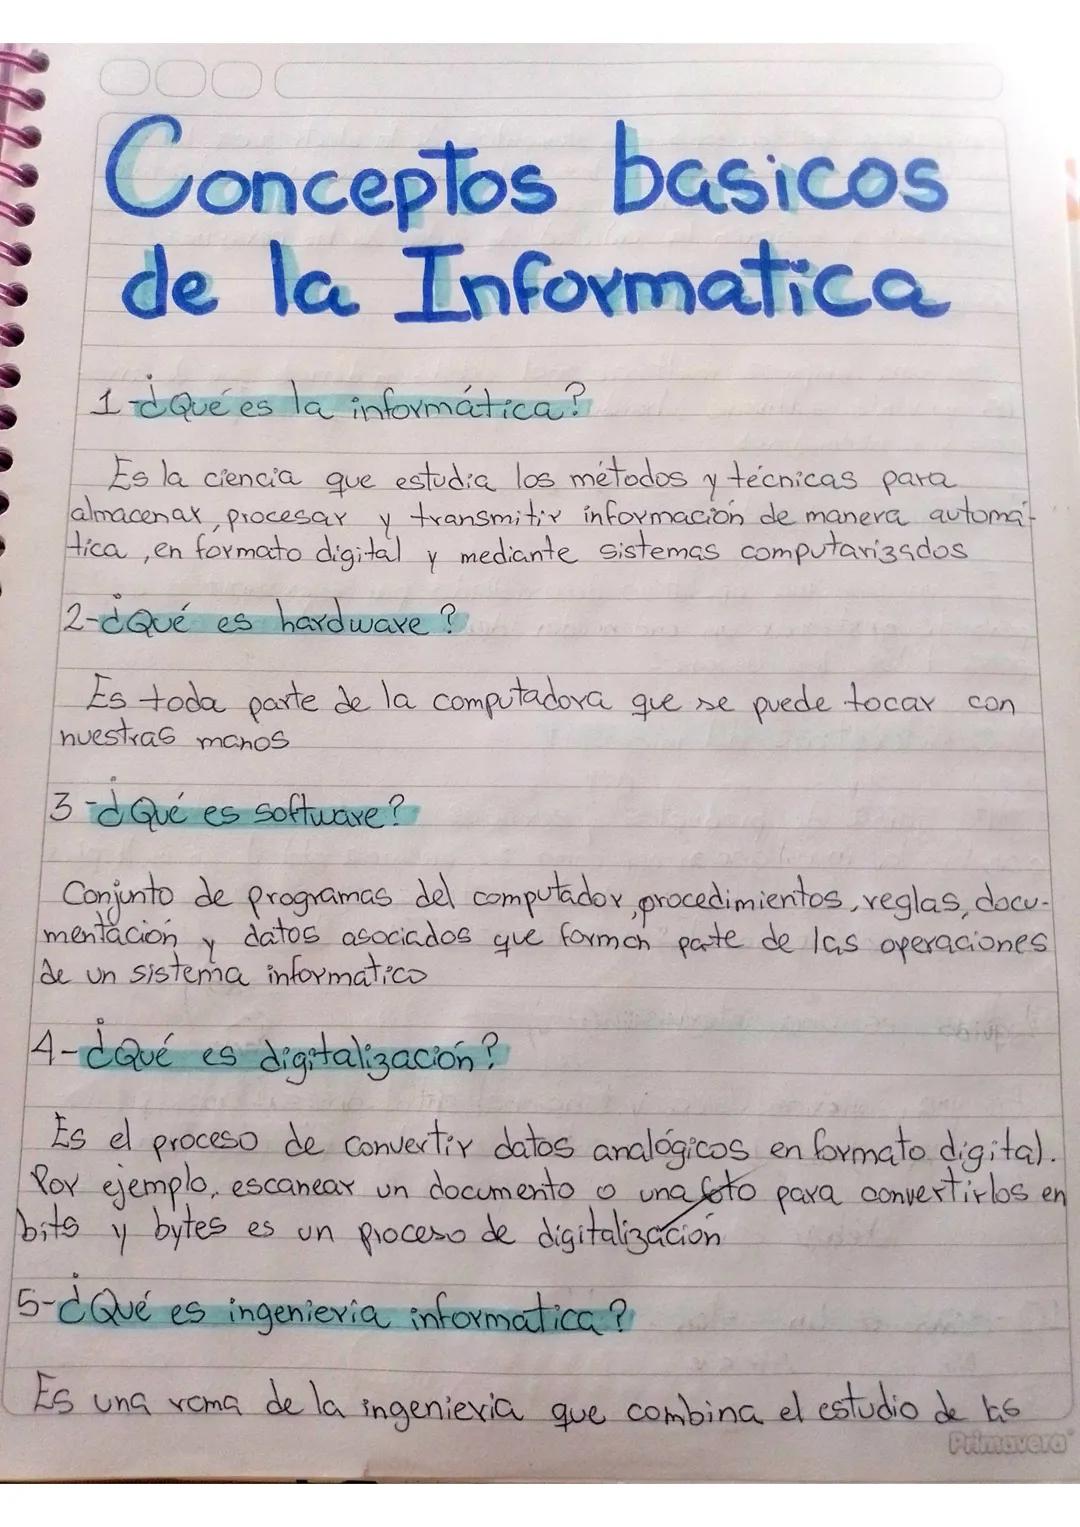 Conceptos basicos
de la Informatica
1-¿Qué es la informática?
Es la ciencia que estudia los métodos y técnicas para
almacenar, procesar y transmitir información de manera automá-
tica, en formato digital y mediante sistemas computarizados
2-¿Qué es hardware?
Es toda parte de la computadora que se puede tocar con
nuestras manos
3-¿Qué es software?
Conjunto de programas del computador, procedimientos, reglas, docu-
mentación y datos asociados que forman parte de las operaciones
de un sistema informatico
4-¿Qué es digitalización?
Es el proceso de convertir datos analógicos en formato digital.
Por ejemplo, escanear un documento o una foto para convertirlos en
bits y bytes es un proceso de digitalización
5-¿Qué es ingenieria informatica?
Es una rama de la ingenieria que combina el estudio de las
Primavera